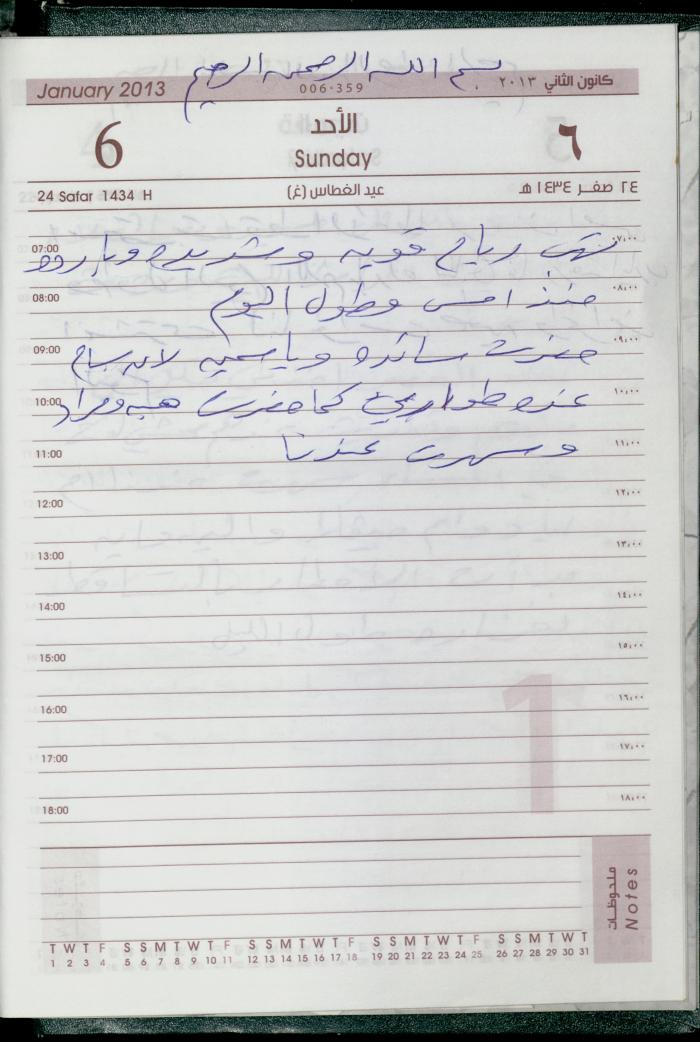 بسم الله الرحمن الرحيم
January 2013 006-359 كانون الثاني ٢٠١٣
6 الأحد ٦
Sunday
24 Safar 1434 H عيد الغطاس (غ) ٢٤ صفر ١٤٣٤ هـ
07:00 تهب رياح قويه وشديده وبارده ٠٧،٠٠
08:00 منذ امس وطول اليوم ٠٨،٠٠
09:00 حضرت سائده وياسمين ٠٩،٠٠
10:00 عنده كما حضرت هبه ومراد ١٠،٠٠
11:00 وسهرت عندنا ١١،٠٠
12:00 ١٢،٠٠
13:00 ١٣،٠٠
14:00 ١٤،٠٠
15:00 ١٥،٠٠
16:00 ١٦،٠٠
17:00 ١٧،٠٠
18:00 ١٨،٠٠
1
ملحوظات
Notes
T W T F S S M T W T F S S M T W T F S S M T W T F S S M T W T
1 2 3 4 5 6 7 8 9 10 11 12 13 14 15 16 17 18 19 20 21 22 23 24 25 26 27 28 29 30 31